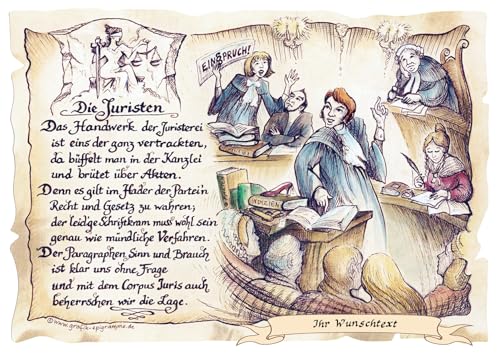 Die Juristen
Das Handwerk der Juristerei
ist eins der ganz vertrackten,
da büffelt man in der Kanzlei
und brütet über Akten.
Denn es gilt im Hader der Partei'n
Recht und Gesetz zu wahren;
der leidge Schriftkram muss wohl sein
genau wie mündliche Verfahren.
Der Paragraphen Sinn und Brauch
ist klar uns ohne Frage
und mit dem Corpus Juris auch
beherrschen wir die Lage.
©www.grafik-epigramme.de
EINSPRUCH!
INDIZIEN
Ihr Wunschtext